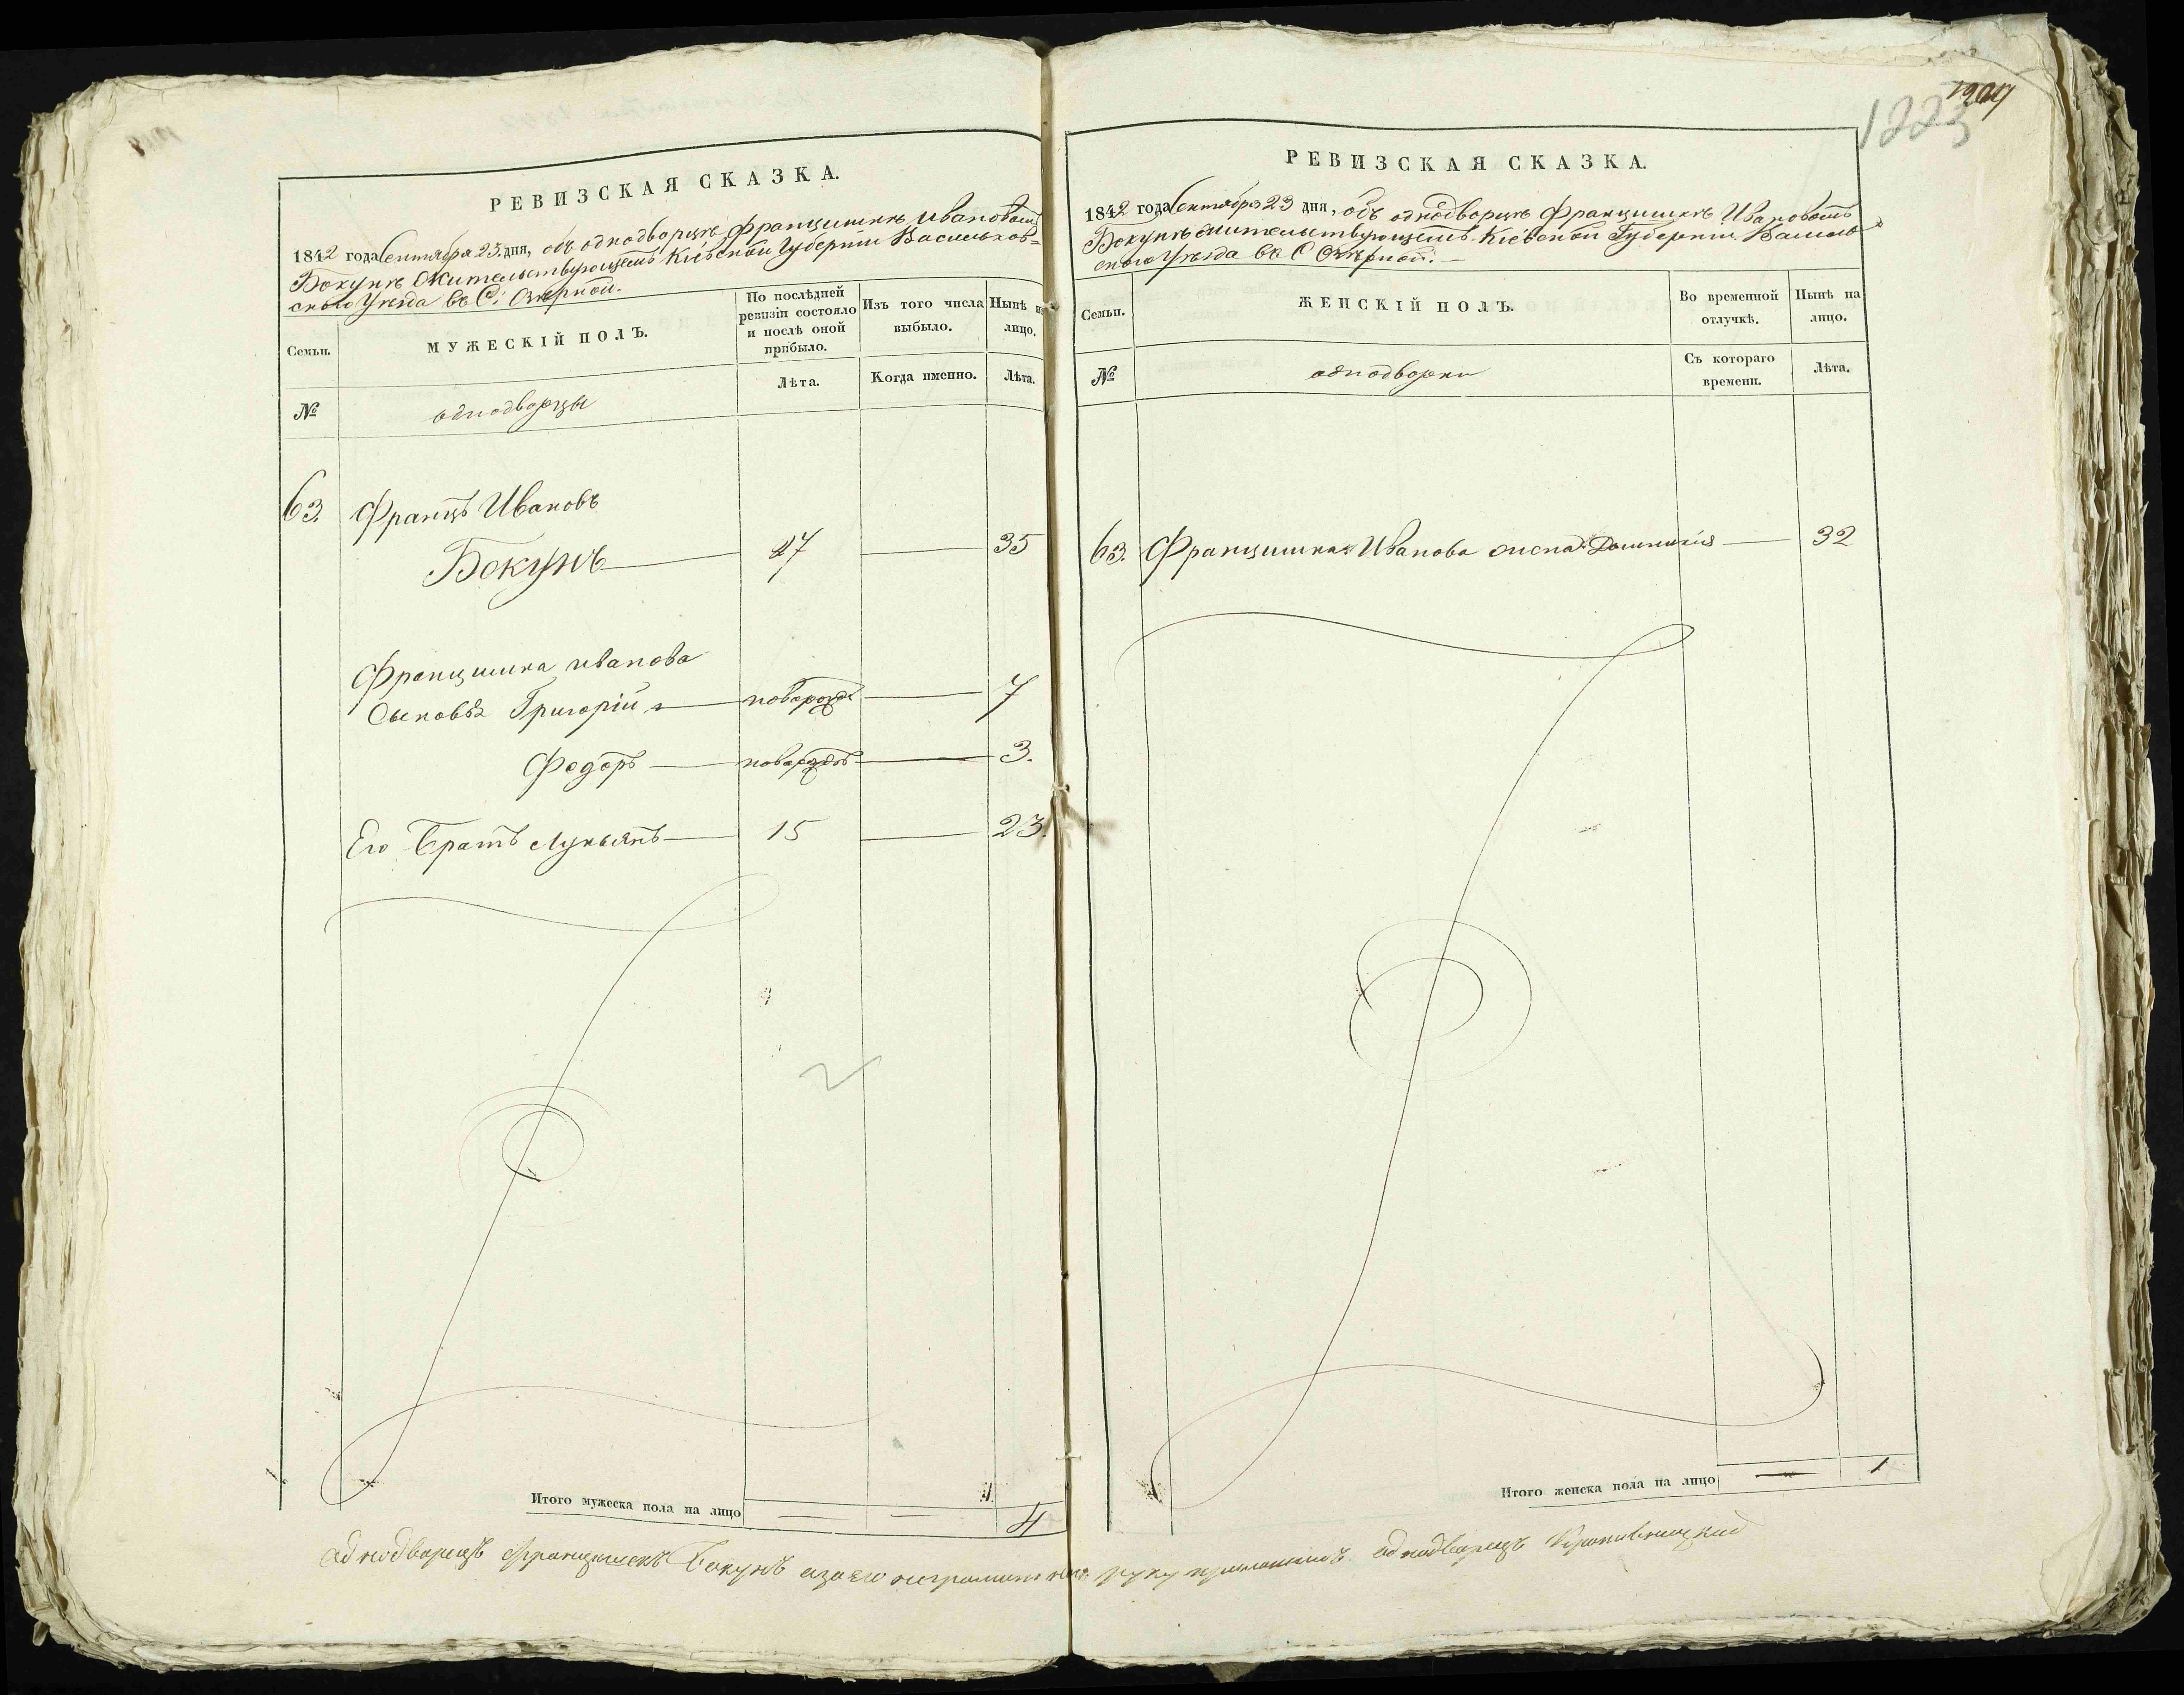 РЕВИЗСКАЯ СКАЗКА.
1842 года Сентября 23 дня, объ однодворцѣ Францишкѣ Ивановѣ
Бокунѣ Жительствующемъ Кіевской Губерніи Васильков-
скаго Уѣзда въ С. Озерной.
Семьи.
МУЖЕСКІЙ ПОЛЪ.
По послѣдней ревизіи состояло и послѣ оной прибыло.
Изъ того числа выбыло.
Нынѣ на лицо.
№
однодворцы
Лѣта.
Когда именно.
Лѣта.
63. Францъ Ивановъ
Бокунъ 27 35
Францишка иванова
Сыновья Григорій новорожд 7
Федоръ новорожд 3.
Его Братъ Лукьянъ 15 23.
Итого мужеска пола на лицо 4
1223
РЕВИЗСКАЯ СКАЗКА.
1842 года Сентября 23 дня, объ однодворцѣ Францишкѣ Ивановѣ
Бокунѣ Жительствующемъ Кіевской Губерніи Василь
скаго Уѣзда въ С Озерной.
Семьи.
ЖЕНСКІЙ ПОЛЪ.
Во временной отлучкѣ.
Нынѣ на лицо.
№
однодворки
Съ котораго времени.
Лѣта.
63. Францишка Иванова жена Доминикія 32
Итого женска пола на лицо 1
однодворецъ Францишекъ Бокунъ азаего неграмотнаго руку приложилъ однодворецъ Кропивницкій